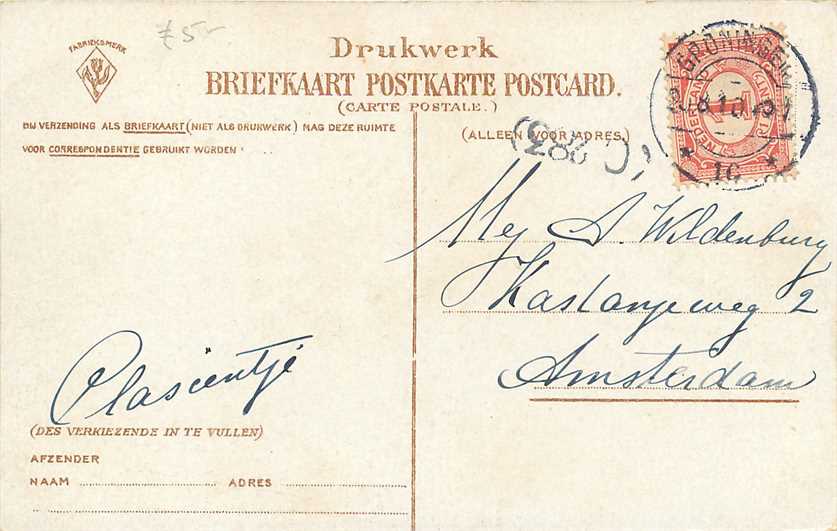 FABRIEKSMERK
£ 5-
Drukwerk
BRIEFKAART POSTKARTE POSTCARD.
(CARTE POSTALE.)
BIJ VERZENDING ALS BRIEFKAART (NIET ALS DRUKWERK) MAG DEZE RUIMTE
VOOR CORRESPONDENTIE GEBRUIKT WORDEN
(ALLEEN VOOR ADRES.)
GRONINGEN
NEDERLAND
1
10
Mej A. Wildenburg
Kastanjeweg 2
Amsterdam
Plasientje
(DES VERKIEZENDE IN TE VULLEN)
AFZENDER
NAAM ADRES